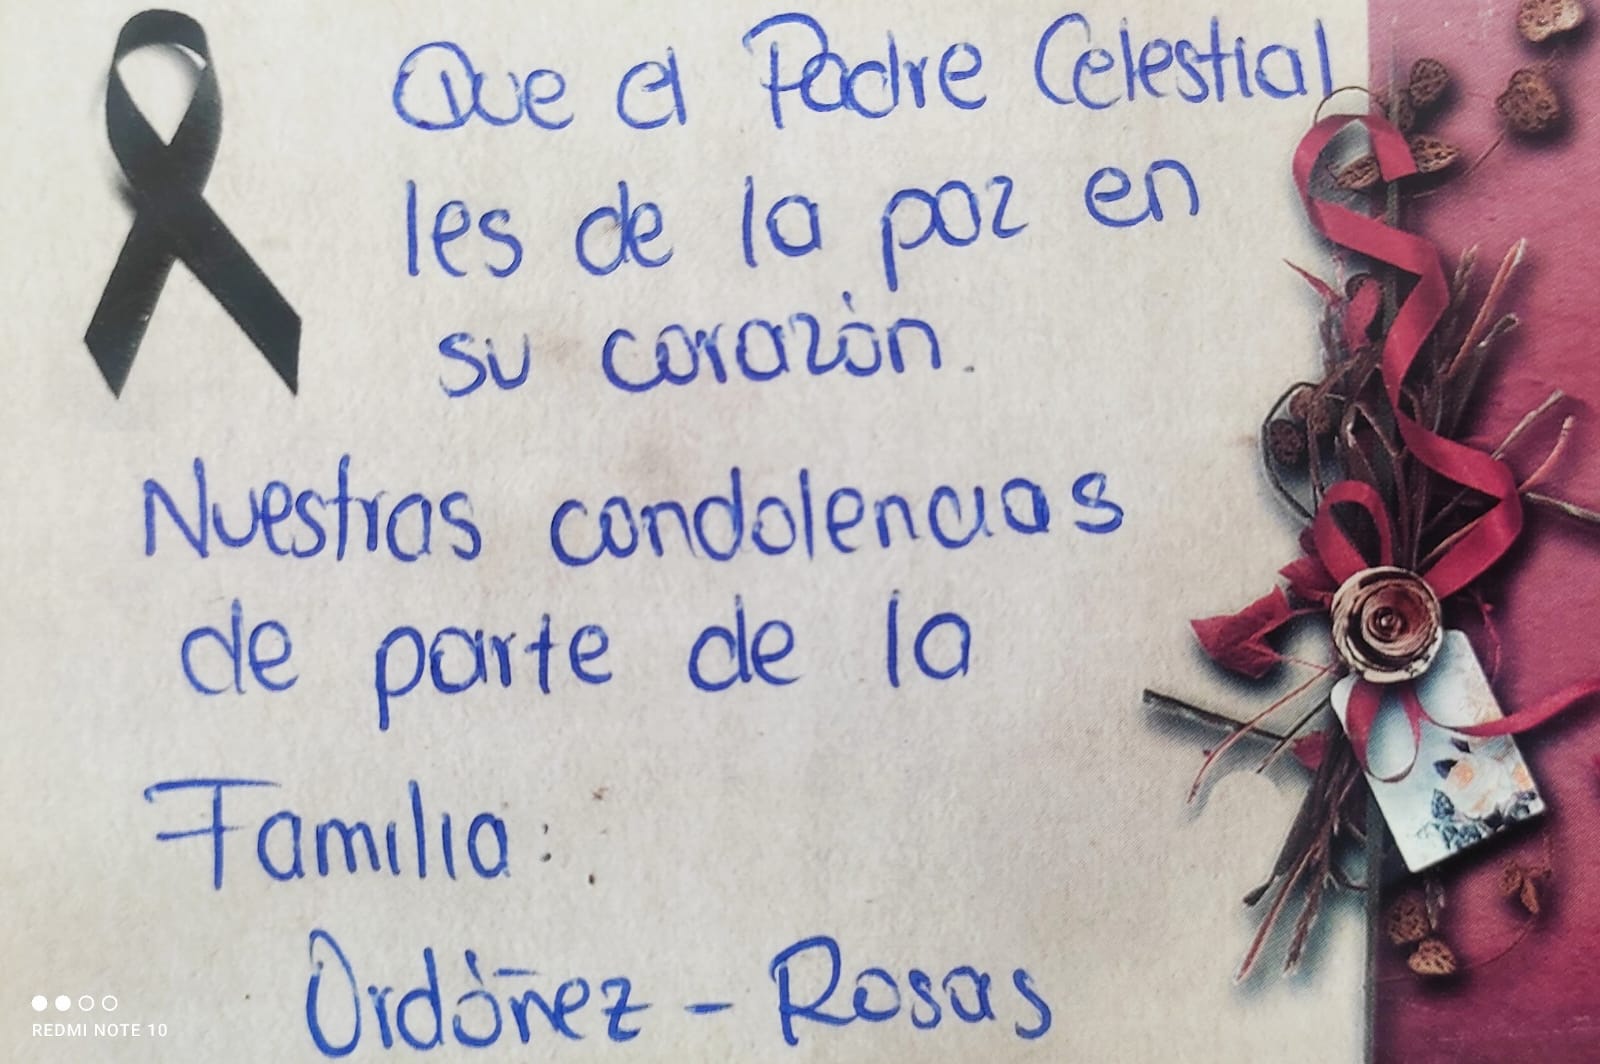 Que el Padre Celestial
les de la paz en
su corazón.
Nuestras condolencias
de parte de la
Familia:
Ordóñez - Rosas
REDMI NOTE 10